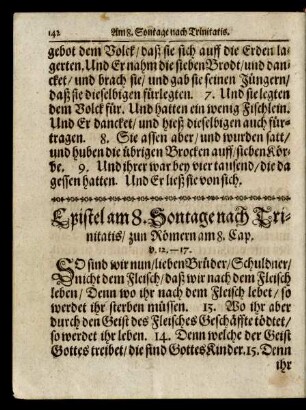 142 Am 8. Sontage nach Trinitatis.
gebot dem Volck/ daß sie sich auff die Erden la-
gerten. Und Er nahm die sieben Brodt/ und dan-
cket/ und brach sie/ und gab sie seinen Jüngern/
daß sie dieselbigen fürlegten. 7. Und sie legten
dem Volck für. Und hatten ein wenig Fischlein.
Und Er dancket/ und hieß dieselbigen auch für-
tragen. 8. Sie assen aber/ und wurden satt/
und huben die übrigen Brocken auff/ sieben Kör-
be. 9. Und ihrer war bey vier tausend/ die da
gessen hatten. Und Er ließ sie von sich.
Epistel am 8. Sontage nach Tri-
nitatis/ zun Römern am 8. Cap.
v. 12.—17.
SO sind wir nun/ lieben Brüder/ Schuldner/
nicht dem Fleisch/ daß wir nach dem Fleisch
leben/ Denn wo ihr nach dem Fleisch lebet/ so
werdet ihr sterben müssen. 13. Wo ihr aber
durch den Geist des Fleisches Geschäffte tödtet/
so werdet ihr leben. 14. Denn welche der Geist
Gottes treibet/ die sind Gottes Kinder. 15. Denn
ihr